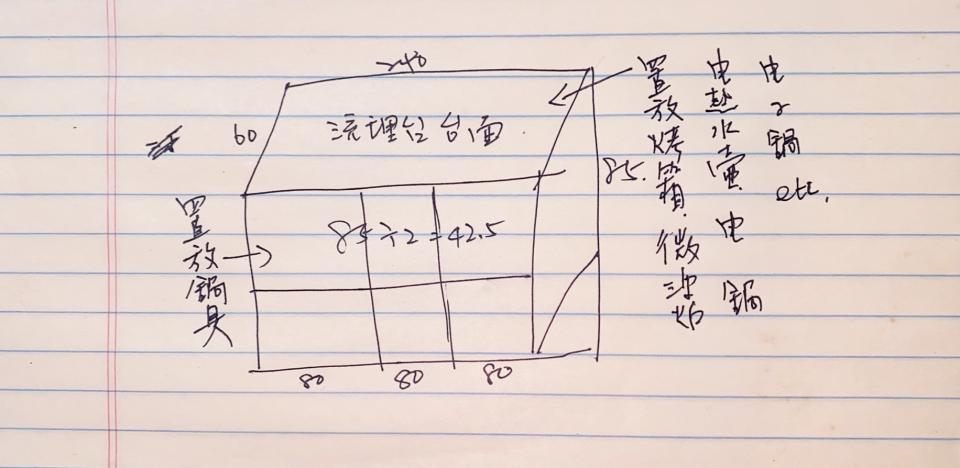 240
60
流理台台面
85.
置放烤箱.微波炉
电热水壶 电锅
电子锅 etc.
置放鍋具
85÷2=42.5
80
80
80